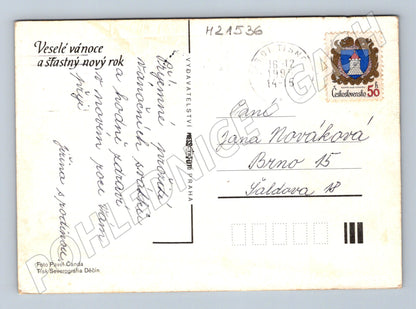 H21536
Veselé vánoce
a šťastný nový rok
Příjemné prožití
vánočních svátků
a hodně zdraví
v novém roce Vám
přeje
Jiřina s rodinou
VYDAVATELSTVÍ
PRAHA
16.12
14-15
Československo 50 h
Paní
Jana Nováková
Brno 15
Šaldova 18
Foto Pavel Čanda
Tisk Severografia Děčín
POHLEDNICE GACH